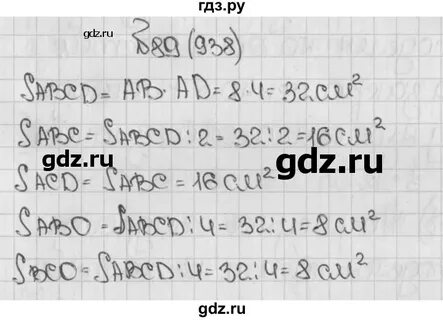 гдз.ру
gdz.ru
889 (938)
SABCD = AB · AD = 8 · 4 = 32 см²
SABC = SABCD : 2 = 32 : 2 = 16 см²
gdz.ru
gdz.ru
SACD = SABC = 16 см²
SABO = SABCD : 4 = 32 : 4 = 8 см²
SBCO = SABCD : 4 = 32 : 4 = 8 см²
gdz.ru
gdz.ru
гдз.ру